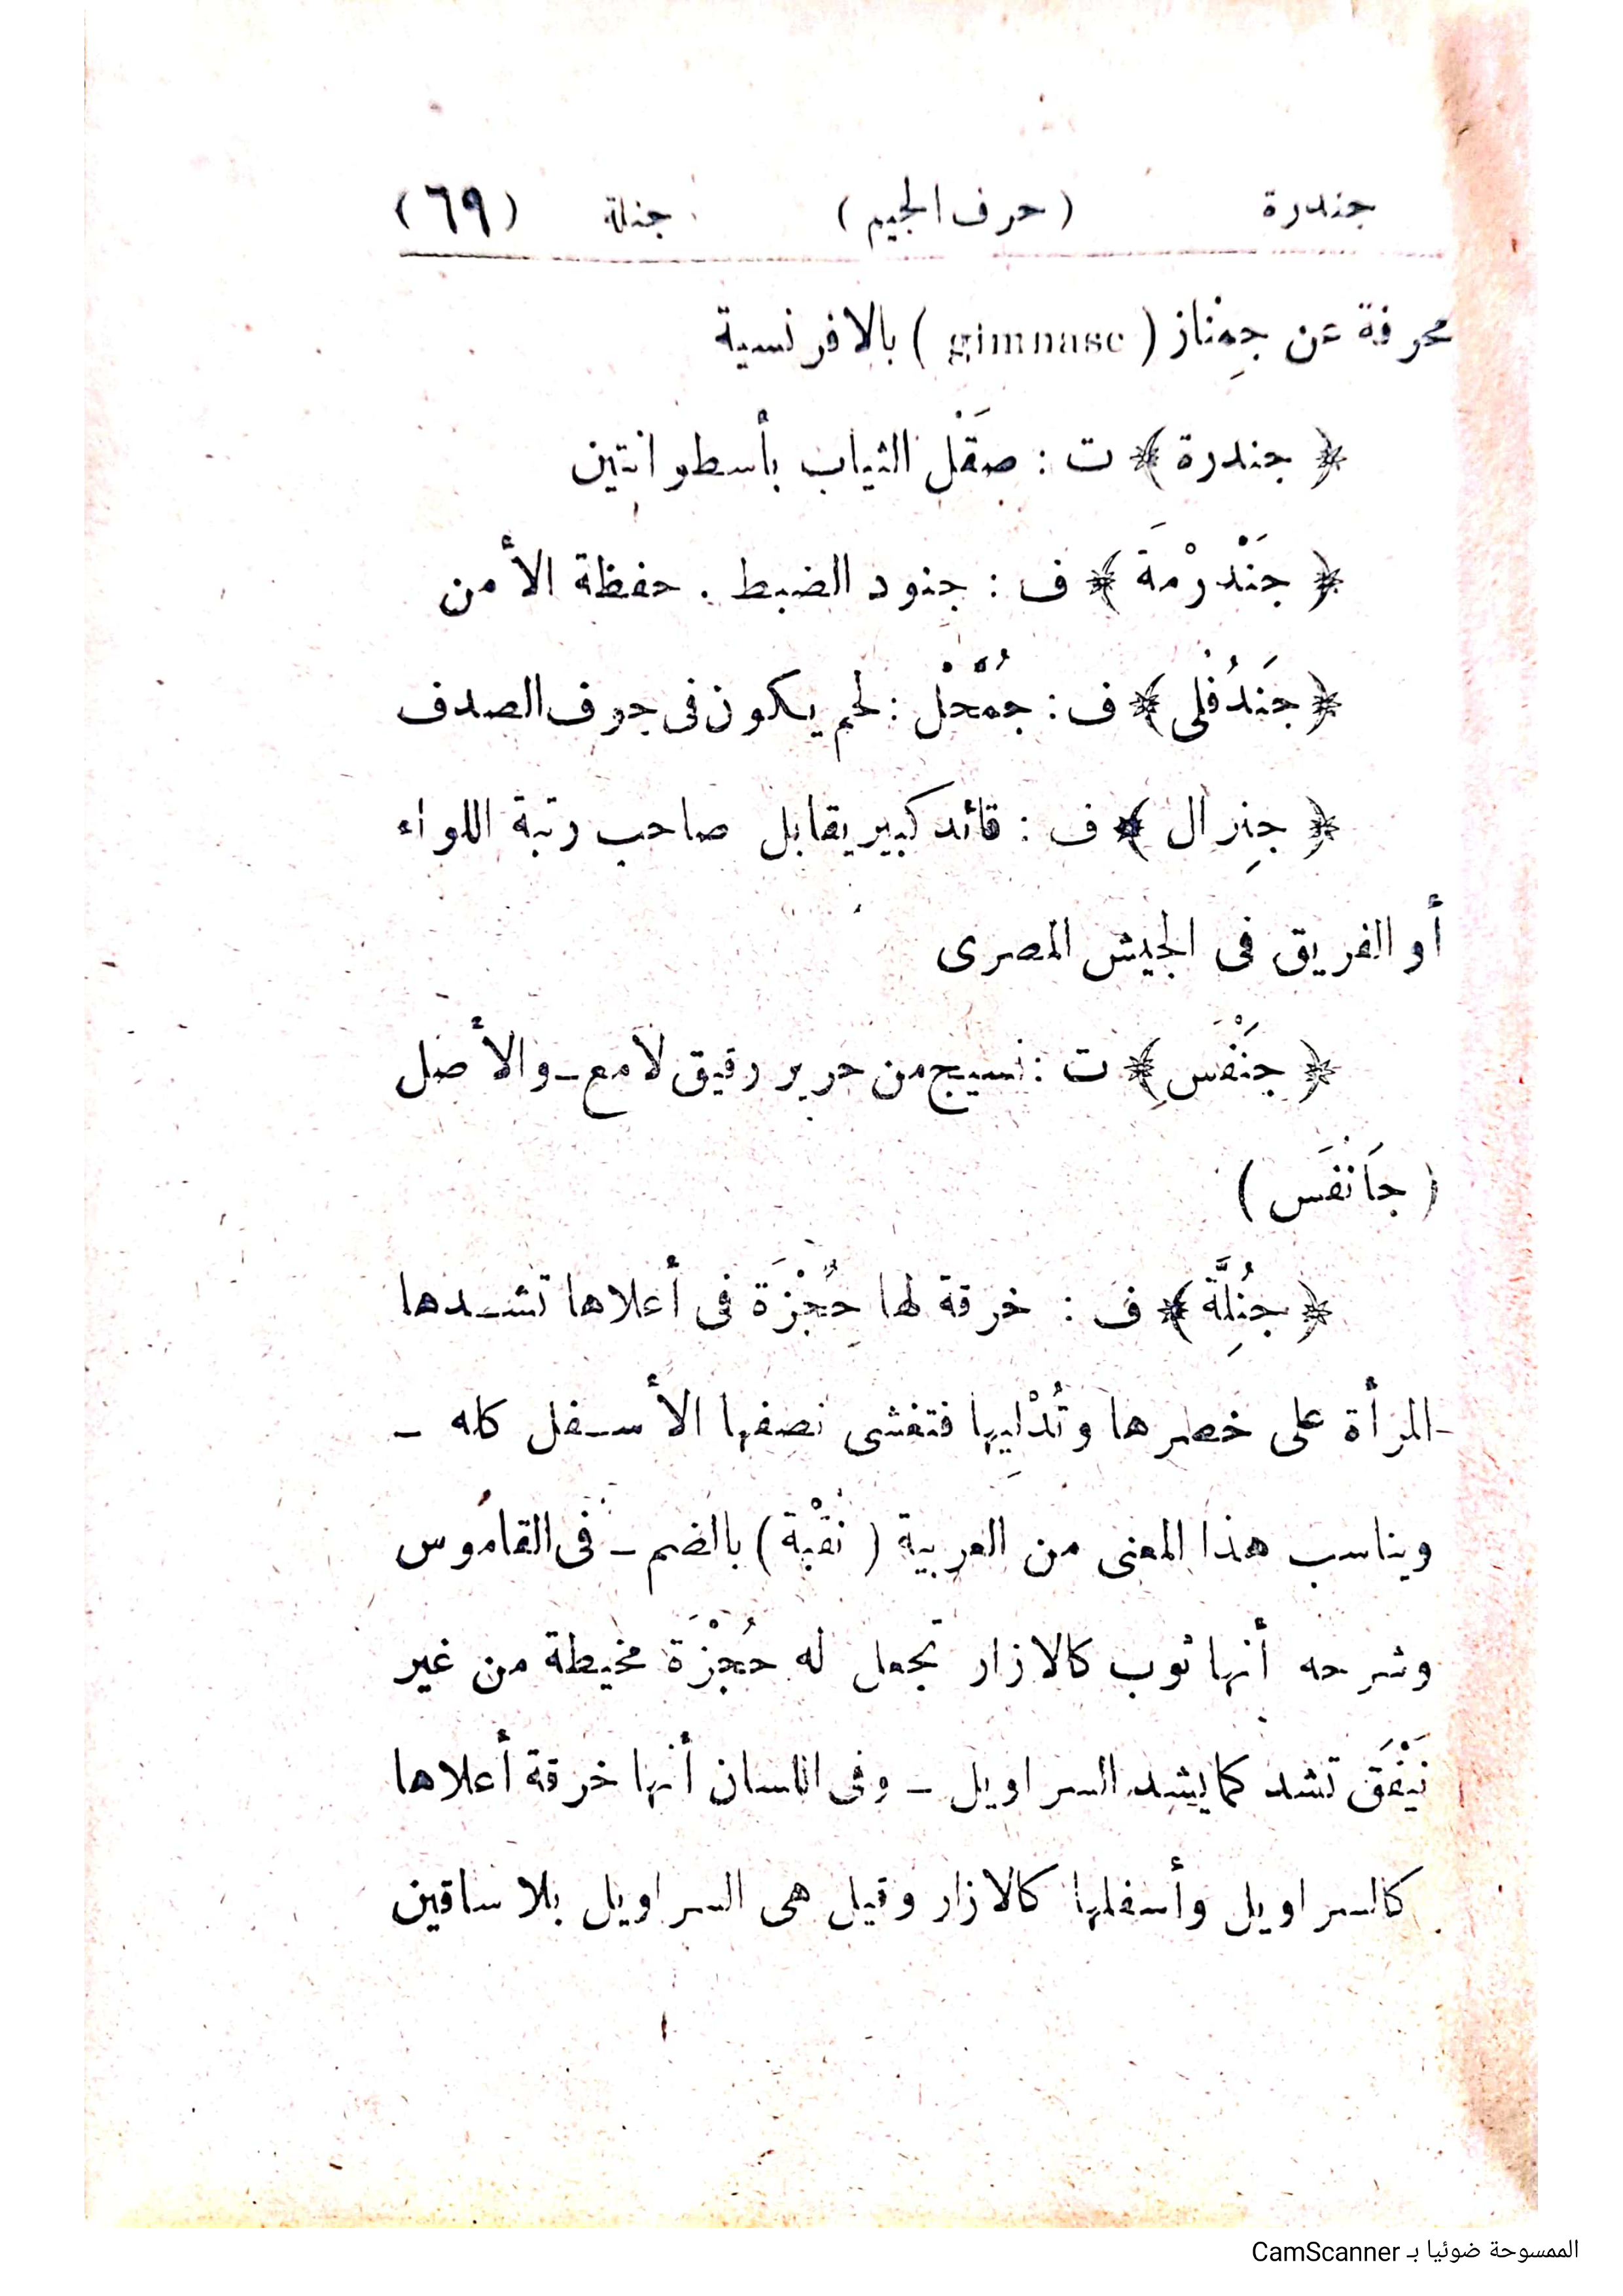 جندرة (حرف الجيم) جنلة (٦٩)
محرفة عن جِمناز (gimnase) بالافرنسية
﴿جندرة﴾ ت : صَقْل الثياب بأسطوانتين
﴿جَنْدرْمَة﴾ ف : جنود الضبط . حفظة الأمن
﴿جَندُفْلى﴾ ف : جُمْحْل : لحم يكون فى جوف الصدف
﴿جِنرال﴾ ف : قائد كبير يقابل صاحب رتبة اللواء
أو الفريق فى الجيش المصرى
﴿جَنْفَسِ﴾ ت : نسيج من حرير رقيق لامع ـ والأصل
(جَانْفَس)
﴿جُنِلَّة﴾ ف : خرقة لها حُِجْزَة فى أعلاها تشـدها
المرأة على خصرها وتُدْلِيها فتغشى نصفها الأسـفل كله ـ
ويناسب هذا المعنى من العربية (نُقْبة) بالضم ـ فى القاموس
وشرحه أنها ثوب كالازار تجعل له حُجْزَة مخيطة من غير
نَيْفَق تشد كما يشد السراويل ـ وفى اللسان أنها خرقة أعلاها
كالسراويل وأسفلها كالازار وقيل هى السراويل بلا ساقين
الممسوحة ضوئيا بـ CamScanner